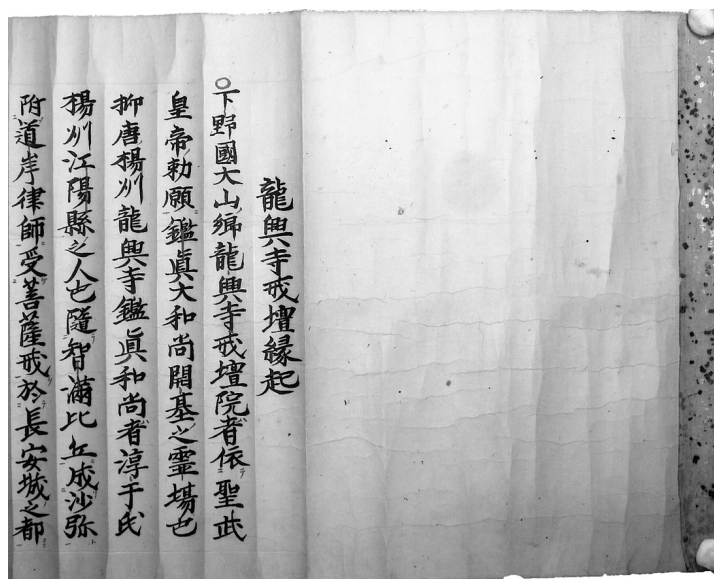 龍興寺戒壇縁起
○下野國大山𨺗龍興寺戒壇院者依聖武
皇帝勅願鑑眞大和尚開基之霊場也
抑唐楊州龍興寺鑑眞和尚者淳于氏
楊州江陽縣之人也隨智満比丘成沙弥
附道岸律師受菩薩戒於長安城之都